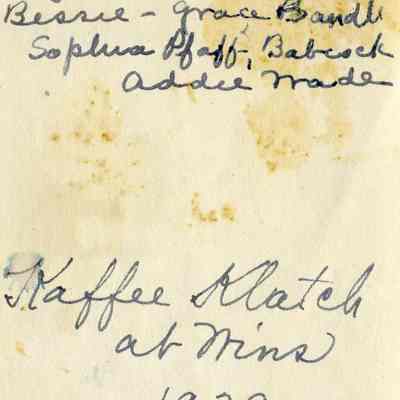 Bessie - Grace Bandli
Sophia Pfaff, Babcock
Addie Wade
Kaffee Klatch
at Wins